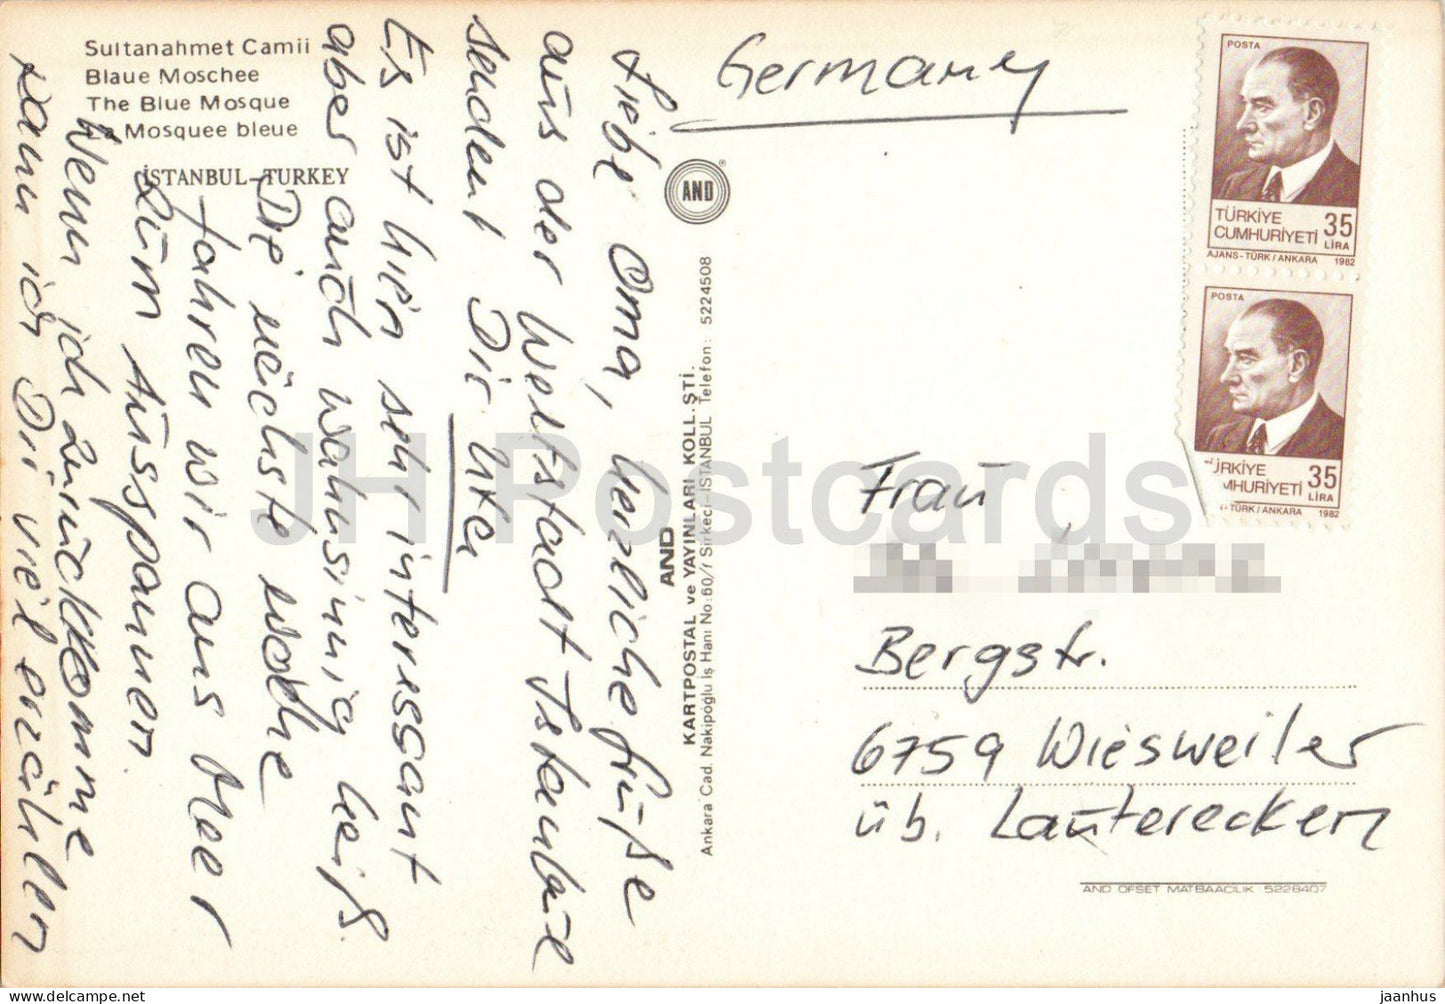 Sultanahmet Camii
Blaue Moschee
The Blue Mosque
Mosquee bleue
İSTANBUL-TURKEY
Liebe Oma, herzliche Grüße
aus der Weltstadt Istanbul
sendet Dir Ute
Es ist hier sehr interessant
aber auch wahnsinnig heiß.
Die nächste Woche
fahren wir ans Meer
zum Ausspannen.
Wenn ich zurückkomme
kann ich Dir viel erzählen
AND
AND
KARTPOSTAL ve YAYINLARI KOLL.ŞTİ.
Ankara Cad. Nakipoğlu İş Hanı No:60/1 Sirkeci-İSTANBUL Telefon: 5224508
Germany
POSTA
TÜRKİYE
CUMHURİYETİ
35
LİRA
AJANS-TÜRK/ANKARA 1982
POSTA
ÜRKİYE
MHURİYETİ
35
LİRA
TÜRK/ANKARA 1982
Frau
Bergstr.
6759 Wiesweiler
üb. Lauterecken
AND OFSET MATBAACILIK 5228407
JH Postcards
jaanhus - delcampe.net